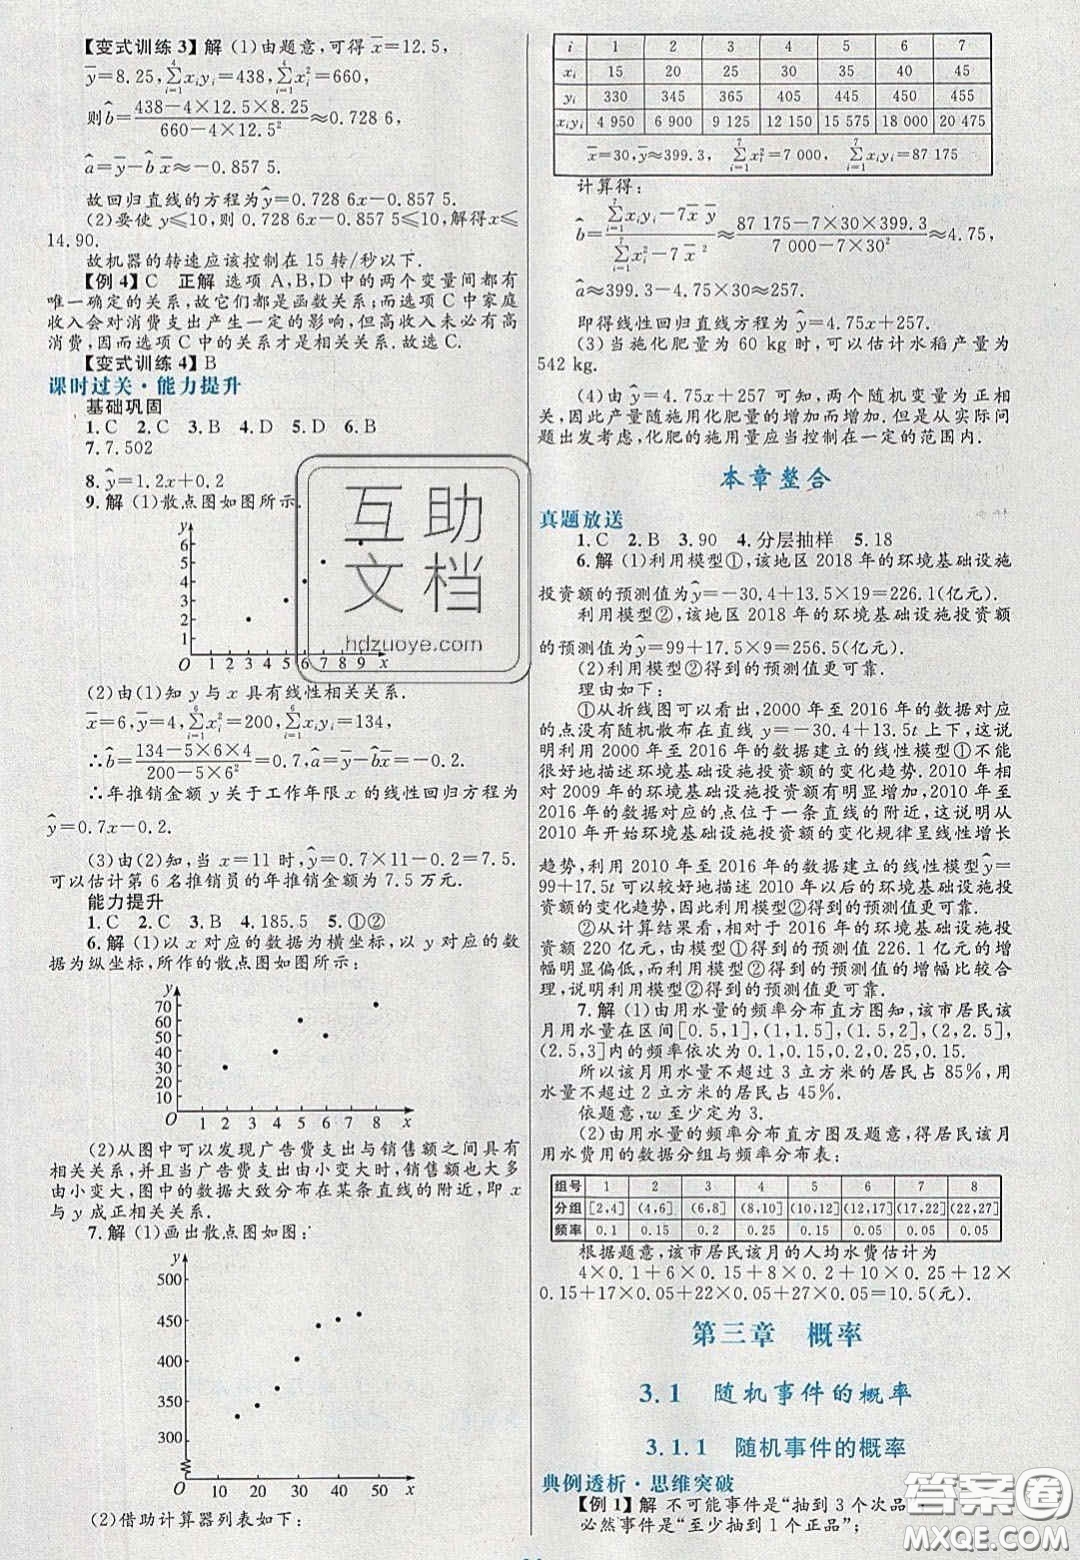 【变式训练3】解 (1)由题意,可得x̄=12.5,
ȳ=8.25,∑xᵢyᵢ=438,∑xᵢ²=660,
则b̂=(438-4×12.5×8.25)/(660-4×12.5²)≈0.728 6,
â=ȳ-b̂x̄≈-0.857 5.
故回归直线的方程为ŷ=0.728 6x-0.857 5.
(2)要使y≤10,则0.728 6x-0.857 5≤10,解得x≤
14.90.
故机器的转速应该控制在15转/秒以下.
【例4】C 正解 选项A,B,D中的两个变量间都有
唯一确定的关系,故它们都是函数关系;而选项C中家庭
收入会对消费支出产生一定的影响,但高收入未必有高
消费,因而选项C中的关系才是相关关系.故选C.
【变式训练4】B
课时过关·能力提升
基础巩固
1.C 2.C 3.B 4.D 5.D 6.B
7.7.502
8.ŷ=1.2x+0.2
9.解 (1)散点图如图所示.
y
7
6
5
4
3
2
1
O 1 2 3 4 5 6 7 8 9 x
(2)由(1)知y与x具有线性相关关系.
x̄=6,ȳ=4,∑xᵢ²=200,∑xᵢyᵢ=134,
∴b̂=(134-5×6×4)/(200-5×6²)=0.7,â=ȳ-b̂x̄=-0.2.
∴年推销金额y关于工作年限x的线性回归方程为
ŷ=0.7x-0.2.
(3)由(2)知,当x=11时,ŷ=0.7×11-0.2=7.5.
可以估计第6名推销员的年推销金额为7.5万元.
能力提升
1.C 2.C 3.B 4.185.5 5.①②
6.解 (1)以x对应的数据为横坐标,以y对应的数
据为纵坐标,所作的散点图如图所示:
y
70
60
50
40
30
20
10
O 1 2 3 4 5 6 7 8 x
(2)从图中可以发现广告费支出与销售额之间具有
相关关系,并且当广告费支出由小变大时,销售额也大多
由小变大,图中的数据大致分布在某条直线的附近,即x
与y成正相关关系.
7.解 (1)画出散点图如图:
y
500
450
400
350
300
O 10 20 30 40 50 x
(2)借助计算器列表如下:
i 1 2 3 4 5 6 7
xᵢ 15 20 25 30 35 40 45
yᵢ 330 345 365 405 445 450 455
xᵢyᵢ 4 950 6 900 9 125 12 150 15 575 18 000 20 475
x̄=30,ȳ≈399.3, ∑xᵢ²=7 000, ∑xᵢyᵢ=87 175
计算得:
b̂=(∑xᵢyᵢ-7x̄ ȳ)/(∑xᵢ²-7x̄²)≈(87 175-7×30×399.3)/(7 000-7×30²)≈4.75,
â≈399.3-4.75×30≈257.
即得线性回归直线方程为ŷ=4.75x+257.
(3)当施化肥量为60 kg时,可以估计水稻产量为
542 kg.
(4)由ŷ=4.75x+257可知,两个随机变量为正相
关,因此产量随施用化肥量的增加而增加.但是从实际问
题出发考虑,化肥的施用量应当控制在一定的范围内.
本章整合
真题放送
1.C 2.B 3.90 4.分层抽样 5.18
6.解 (1)利用模型①,该地区2018年的环境基础设施
投资额的预测值为ŷ=-30.4+13.5×19=226.1(亿元).
利用模型②,该地区2018年的环境基础设施投资额
的预测值为ŷ=99+17.5×9=256.5(亿元).
(2)利用模型②得到的预测值更可靠.
理由如下:
①从折线图可以看出,2000年至2016年的数据对应
的点没有随机散布在直线y=-30.4+13.5t上下,这说
明利用2000年至2016年的数据建立的线性模型①不能
很好地描述环境基础设施投资额的变化趋势.2010年相
对2009年的环境基础设施投资额有明显增加,2010年至
2016年的数据对应的点位于一条直线的附近,这说明从
2010年开始环境基础设施投资额的变化规律呈线性增长
趋势,利用2010年至2016年的数据建立的线性模型ŷ=
99+17.5t可以较好地描述2010年以后的环境基础设施投
资额的变化趋势,因此利用模型②得到的预测值更可靠.
②从计算结果看,相对于2016年的环境基础设施投
资额220亿元,由模型①得到的预测值226.1亿元的增
幅明显偏低,而利用模型②得到的预测值的增幅比较合
理,说明利用模型②得到的预测值更可靠.
7.解 (1)由用水量的频率分布直方图知,该市居民该
月用水量在区间[0.5,1],(1,1.5],(1.5,2],(2,2.5],
(2.5,3]内的频率依次为0.1,0.15,0.2,0.25,0.15.
所以该月用水量不超过3立方米的居民占85%,用
水量不超过2立方米的居民占45%.
依题意,w至少定为3.
(2)由用水量的频率分布直方图及题意,得居民该月
用水费用的数据分组与频率分布表:
组号 1 2 3 4 5 6 7 8
分组 [2,4] (4,6] (6,8] (8,10] (10,12] (12,17] (17,22] (22,27]
频率 0.1 0.15 0.2 0.25 0.15 0.05 0.05 0.05
根据题意,该市居民该月的人均水费估计为
4×0.1+6×0.15+8×0.2+10×0.25+12×
0.15+17×0.05+22×0.05+27×0.05=10.5(元).
第三章 概率
3.1 随机事件的概率
3.1.1 随机事件的概率
典例透析·思维突破
【例1】解 不可能事件是“抽到3个次品
必然事件是“至少抽到1个正品”;
互助
文档
hdzuoye.com
答案圈
MXQE.COM